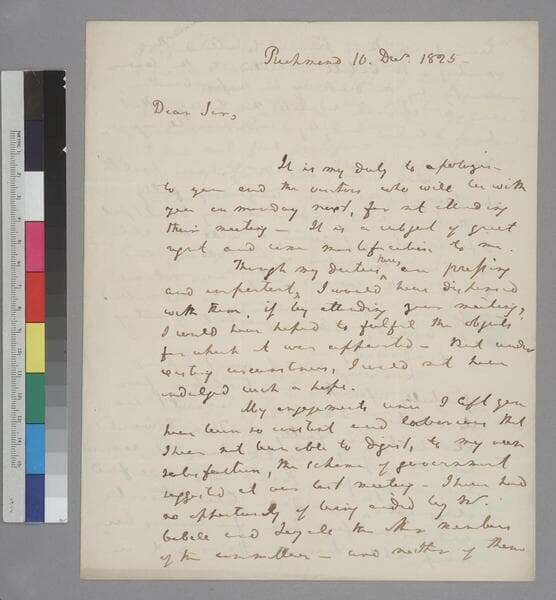 Richmond 10. Decr. 1825 -
Dear Sir,
It is my duty to apologise
to you and the visitors who will be with
you on monday next, for not attending
their meeting - It is a subject of great
regret and even mortification to me.
Though my duties here, are pressing
and important, I would have dispensed
with them, if by attending your meeting,
I could have hoped to fulfil the objects
for which it was appointed - But under
existing circumstances, I could not have
indulged such a hope.
My engagements since I left you
have been so constant and laborious that
I have not been able to digest, to my own
satisfaction, the scheme of government
suggested at our last meeting - I have had
no opportunity of being aided by Mr.
Cabell and the other members
of the committee - and neither of them